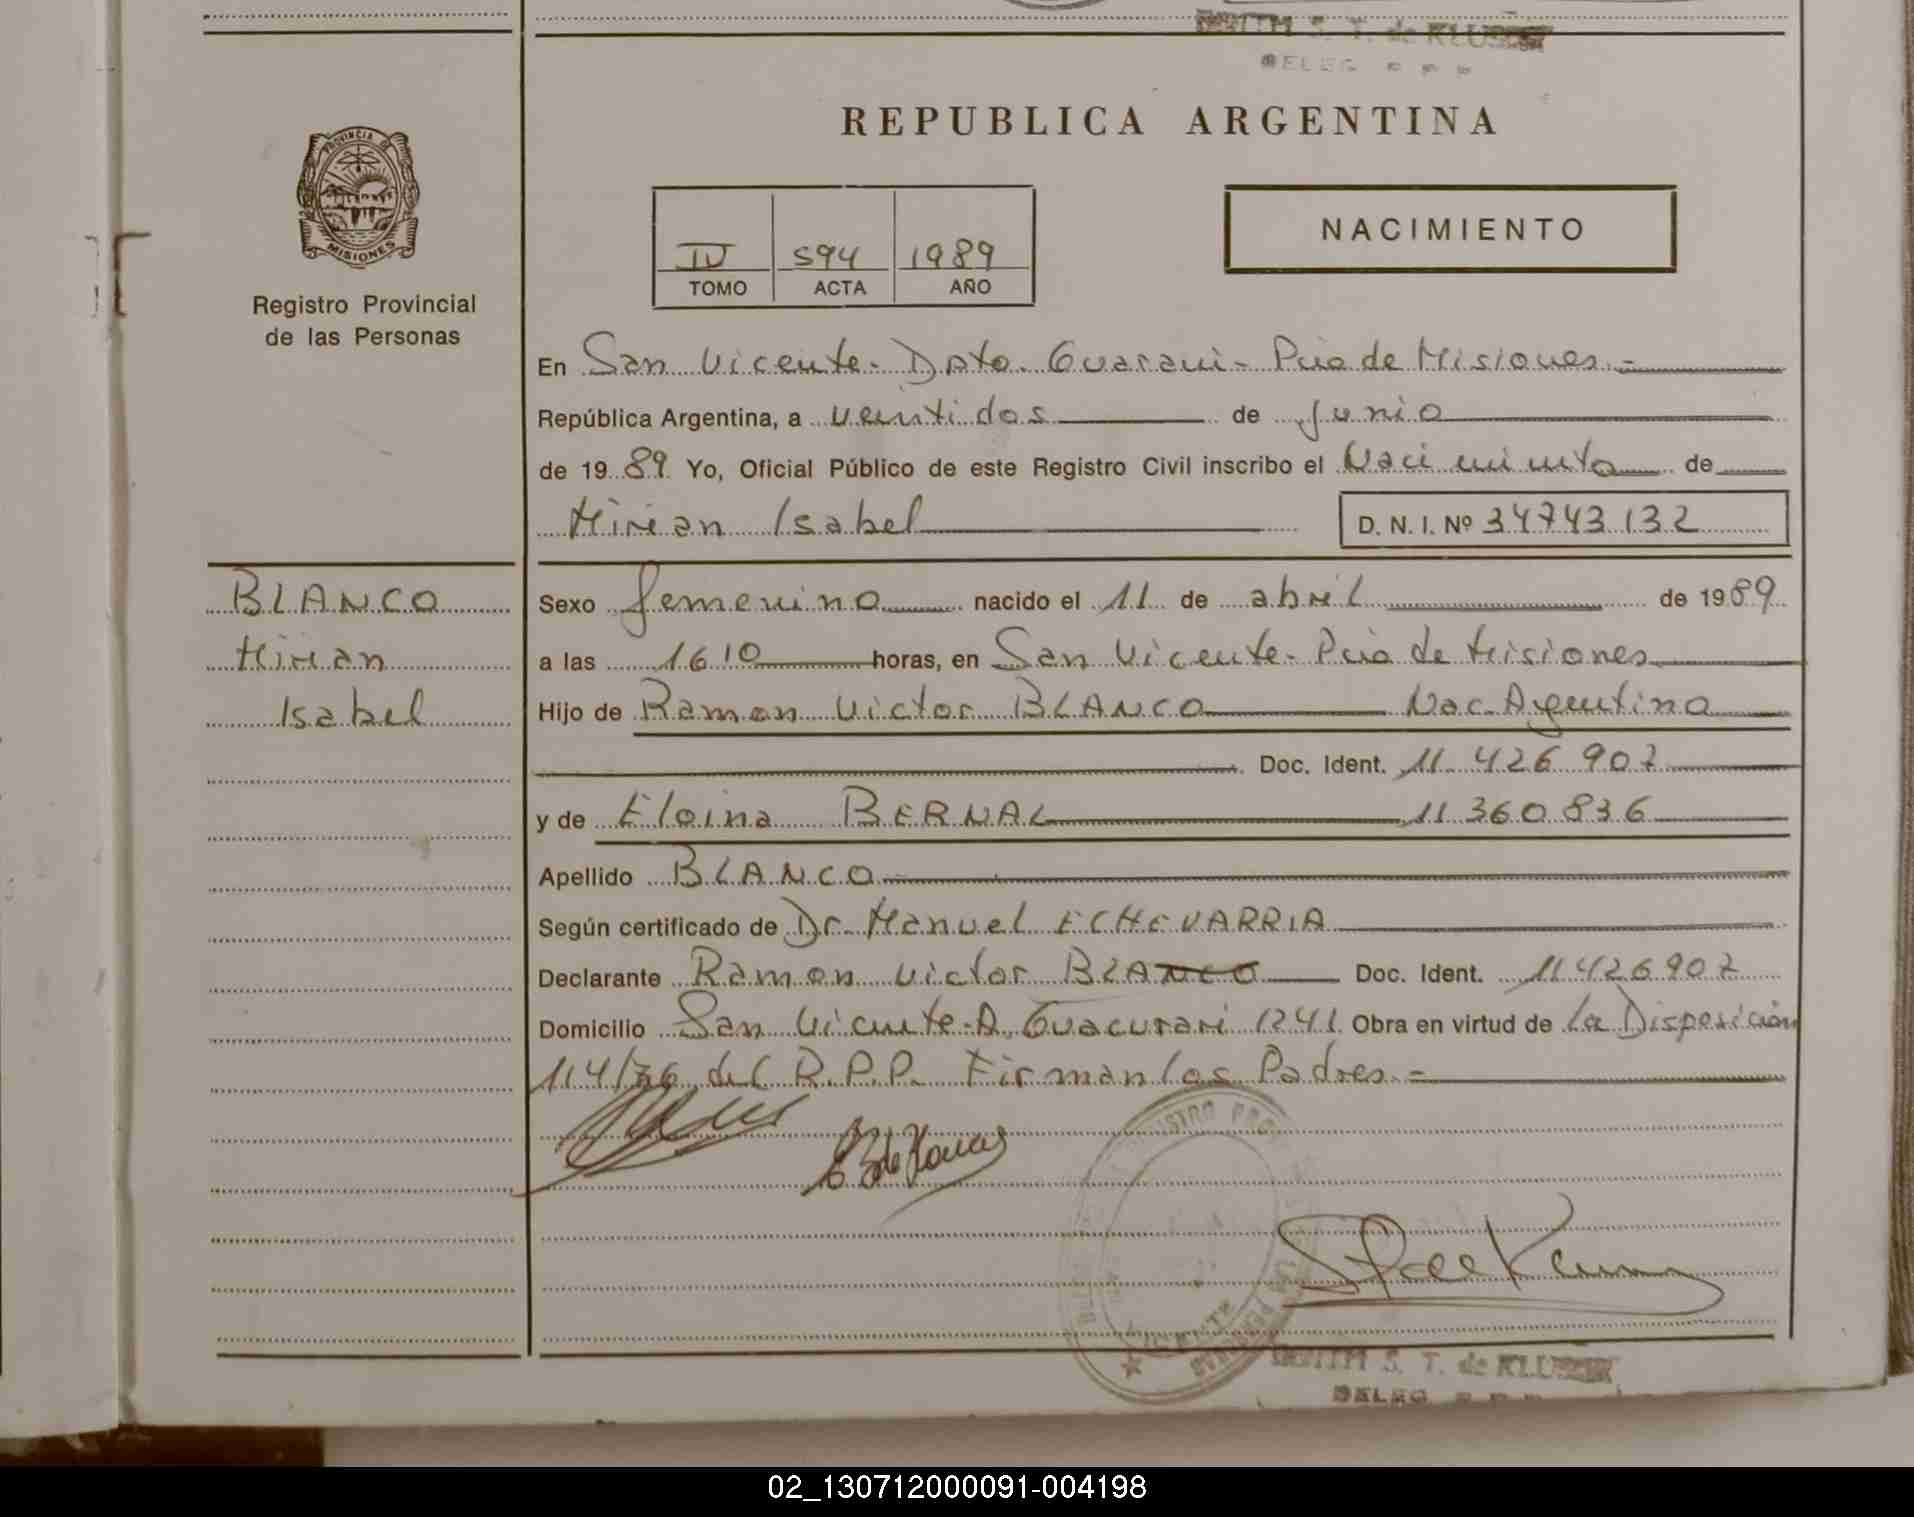 S. T. de KLU
DELEG
REPUBLICA ARGENTINA
PROVINCIA DE
MISIONES
Registro Provincial
de las Personas
IV 594 1989
TOMO ACTA AÑO
NACIMIENTO
En San Vicente - Dpto. Guarani - Pcia de Misiones.-
República Argentina, a veintidos de junio
de 1989. Yo, Oficial Público de este Registro Civil inscribo el Nacimiento de
Mirian Isabel D. N. I. Nº 34743132
BLANCO
Mirian
Isabel
Sexo femenino nacido el 11 de abril de 1989
a las 1610 horas, en San Vicente - Pcia de Misiones
Hijo de Ramon Victor BLANCO Nac. Argentina
Doc. Ident. 11 426 907
y de Eloina BERNAL 11 360 836
Apellido BLANCO
Según certificado de Dr. Manuel ECHEVARRIA
Declarante Ramon Victor BLANCO Doc. Ident. 11426907
Domicilio San Vicente - A. Guacurari 1241. Obra en virtud de La Disposición
114/76 del R.P.P. Firman los Padres.-
S. T. de KLU
DELEG
02_130712000091-004198